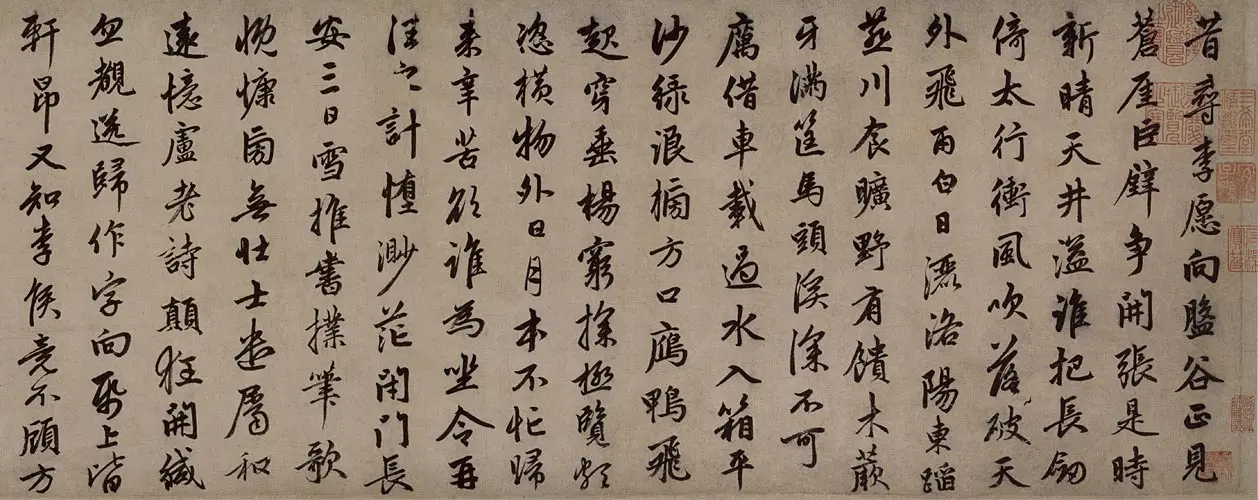 昔尋李愿向盤谷正見
蒼厓巨壁争開張是時
新晴天井溢誰把長劒
倚太行衝風吹落破天
外飛雨白日灑洛陽東蹈
燕川食曠野有饋木蕨
牙滿筐馬頭溪深不可
厲借車載過水入箱平
沙緑浪搒方口鴈鴨飛
起穿垂楊窮探極覽頗
恣橫物外日月本不忙歸
来辛苦欲誰為坐令再
往之計墮渺茫閉門長
安三日雪推書撲筆歌
慨慷旁無壮士遣屬和
遠憶盧老詩顛狂開緘
忽覩送歸作字向紙上皆
軒昂又知李侯竟不顧方